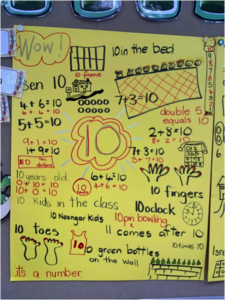 Wow!
10 in the bed
10 frame
Ben 10
4+6=10
5+5=10
7+3=10
double 5
equals 10
9+1=10
1+9=10
2+8=10
7+3=10
10
10 years old
6+4=10
4+6=10
10+0=10
0+10=10
10 fingers
10 kids in the class
10 o'clock
10 Noongar Kids
10 pin bowling
11 comes after 10
10 toes
10
10 times 10
10 green bottles
on the wall
it's a number